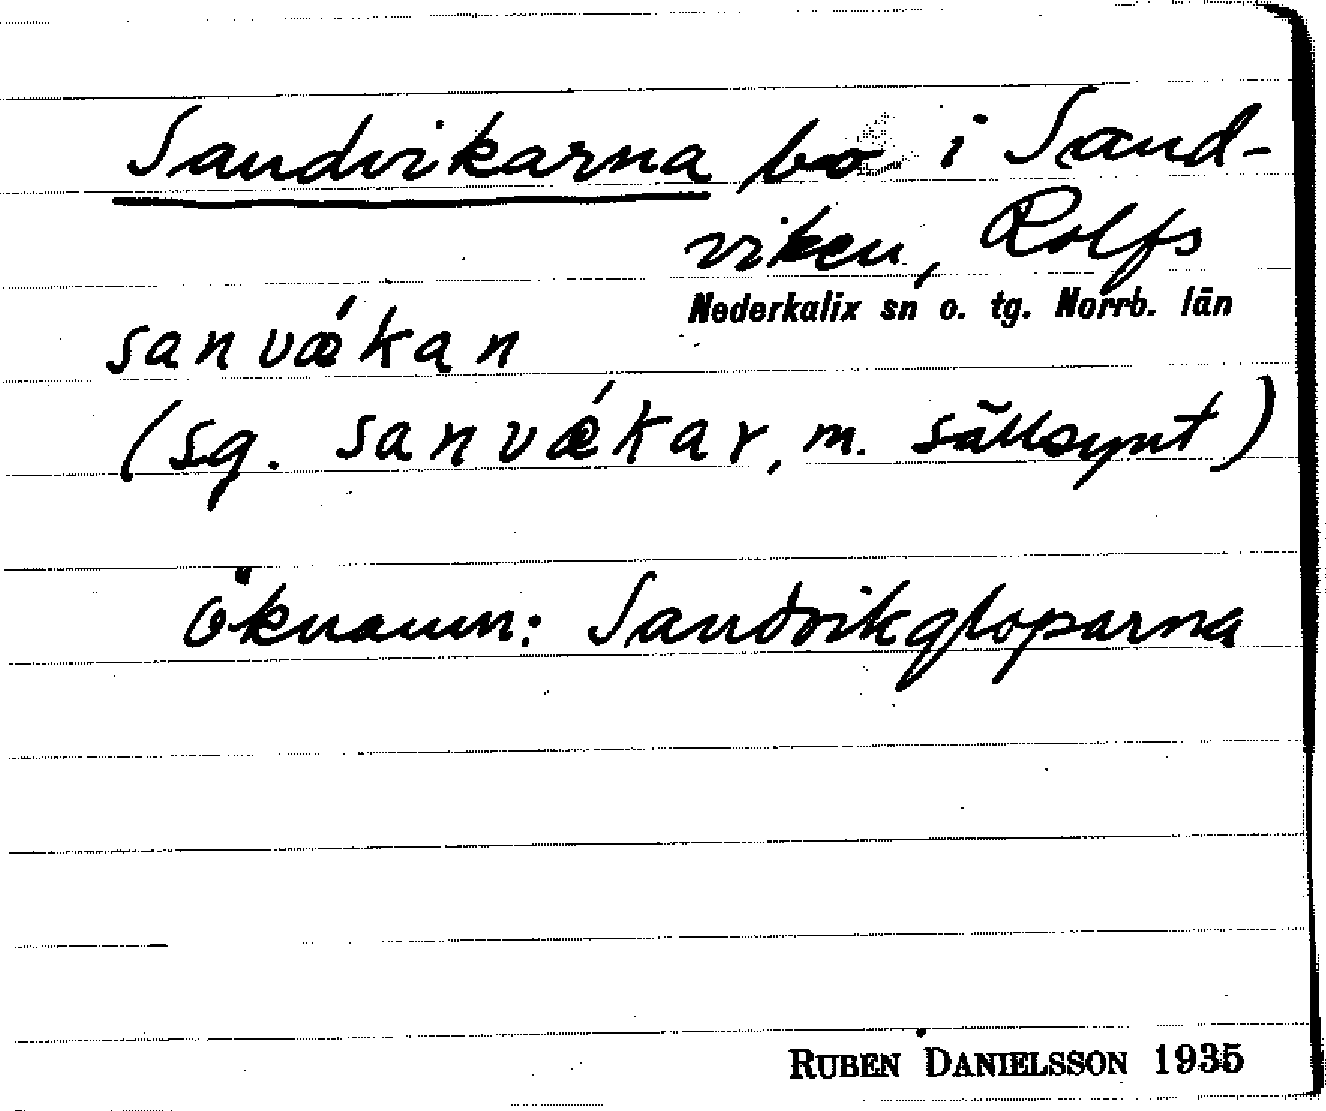 Sandvikarna bo i Sand-
viken, Rolfs
Nederkalix sn o. tg. Norrb. län
sanvǽkan
(sg. sanvǽkar, m. sällsynt)
öknamn: Sandvikgloparna
RUBEN DANIELSSON 1935